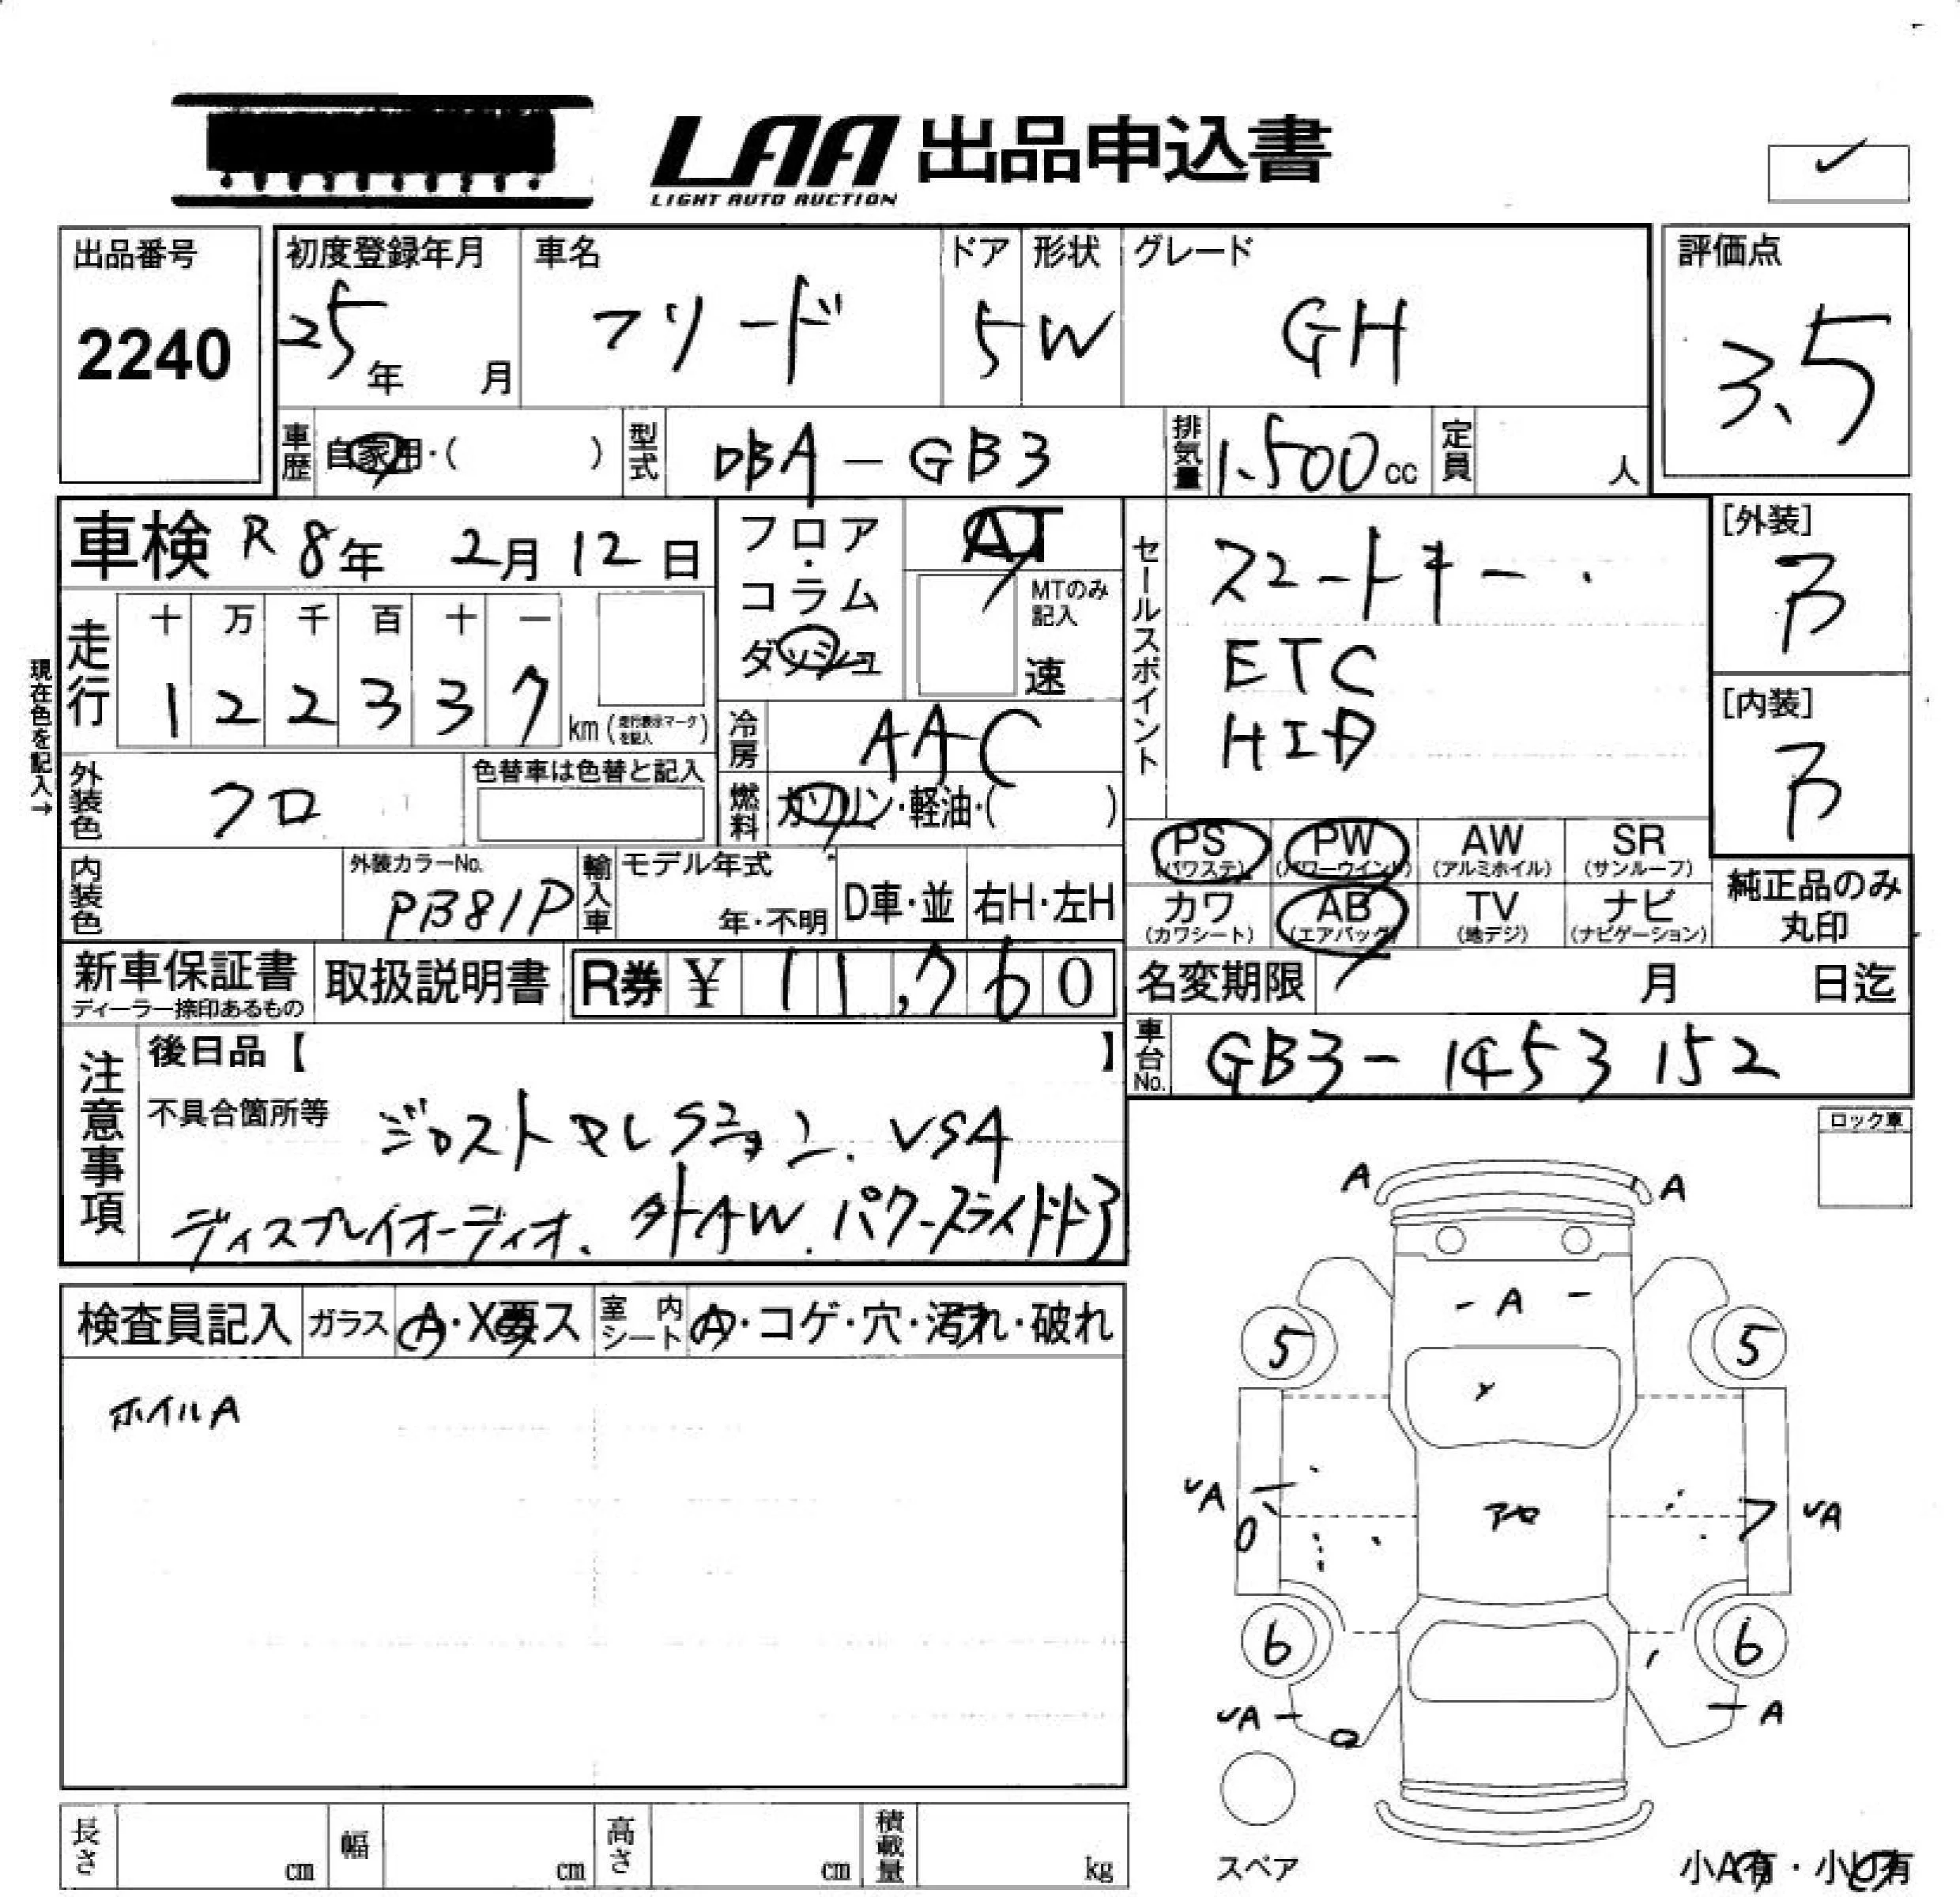 LAA 出品申込書
LIGHT AUTO AUCTION
出品番号
2240
初度登録年月
25年 月
車名
フリード
ドア
5
形状
W
グレード
GH
評価点
3.5
車歴 自家用・( )
型式 DBA-GB3
排気量 1.500cc
定員 人
車検 R8年 2月12日
フロア・コラム
ダッシュ
AT
MTのみ記入
速
セールスポイント
スマートキー.
ETC
HID
[外装]
B
[内装]
B
現在色を記入→
走行
十 万 千 百 十 一
1 2 2 3 3 7 km (走行表示マークを記入)
冷房 AAC
燃料 ガソリン・軽油・( )
外装色 クロ
色替車は色替と記入
内装色
外装カラーNo.
PB81P
輸入車
モデル年式
年・不明
D車・並 右H・左H
PS (パワステ)
PW (パワーウインド)
AW (アルミホイル)
SR (サンルーフ)
カワ (カワシート)
AB (エアバッグ)
TV (地デジ)
ナビ (ナビゲーション)
純正品のみ
丸印
新車保証書
ディーラー捺印あるもの
取扱説明書
R券 ¥ 11,760
名変期限 月 日迄
車台No. GB3-1453152
注意事項
後日品【 】
不具合箇所等 ジャストセレクション. VSA
ディスプレイオーディオ. 外AW. パワースライドドア
ロック車
検査員記入
ガラス A・X要ス
室内シート A・コゲ・穴・汚れ・破れ
ホイルA
A A
A
5 5
UA UA
6 6
UA A
スペア
長さ cm
幅 cm
高さ cm
積載量 kg
小A有・小U有